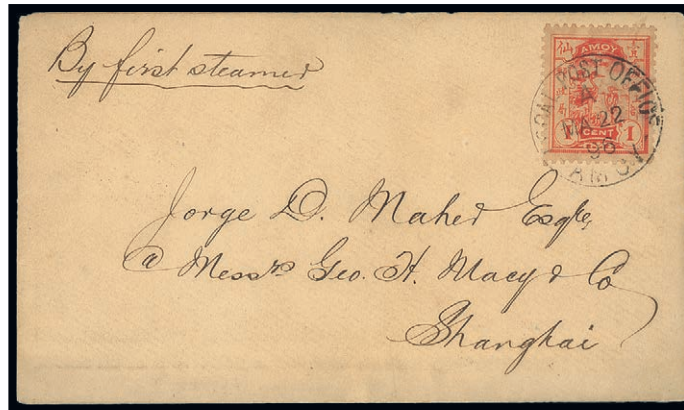 By first steamer
AMOY
1 CENT 1
LOCAL POST OFFICE
A
MA 22
96
AMOY
Jorge D. Maher Esqre
a Messrs Geo. H. Macy & Co
Shanghai